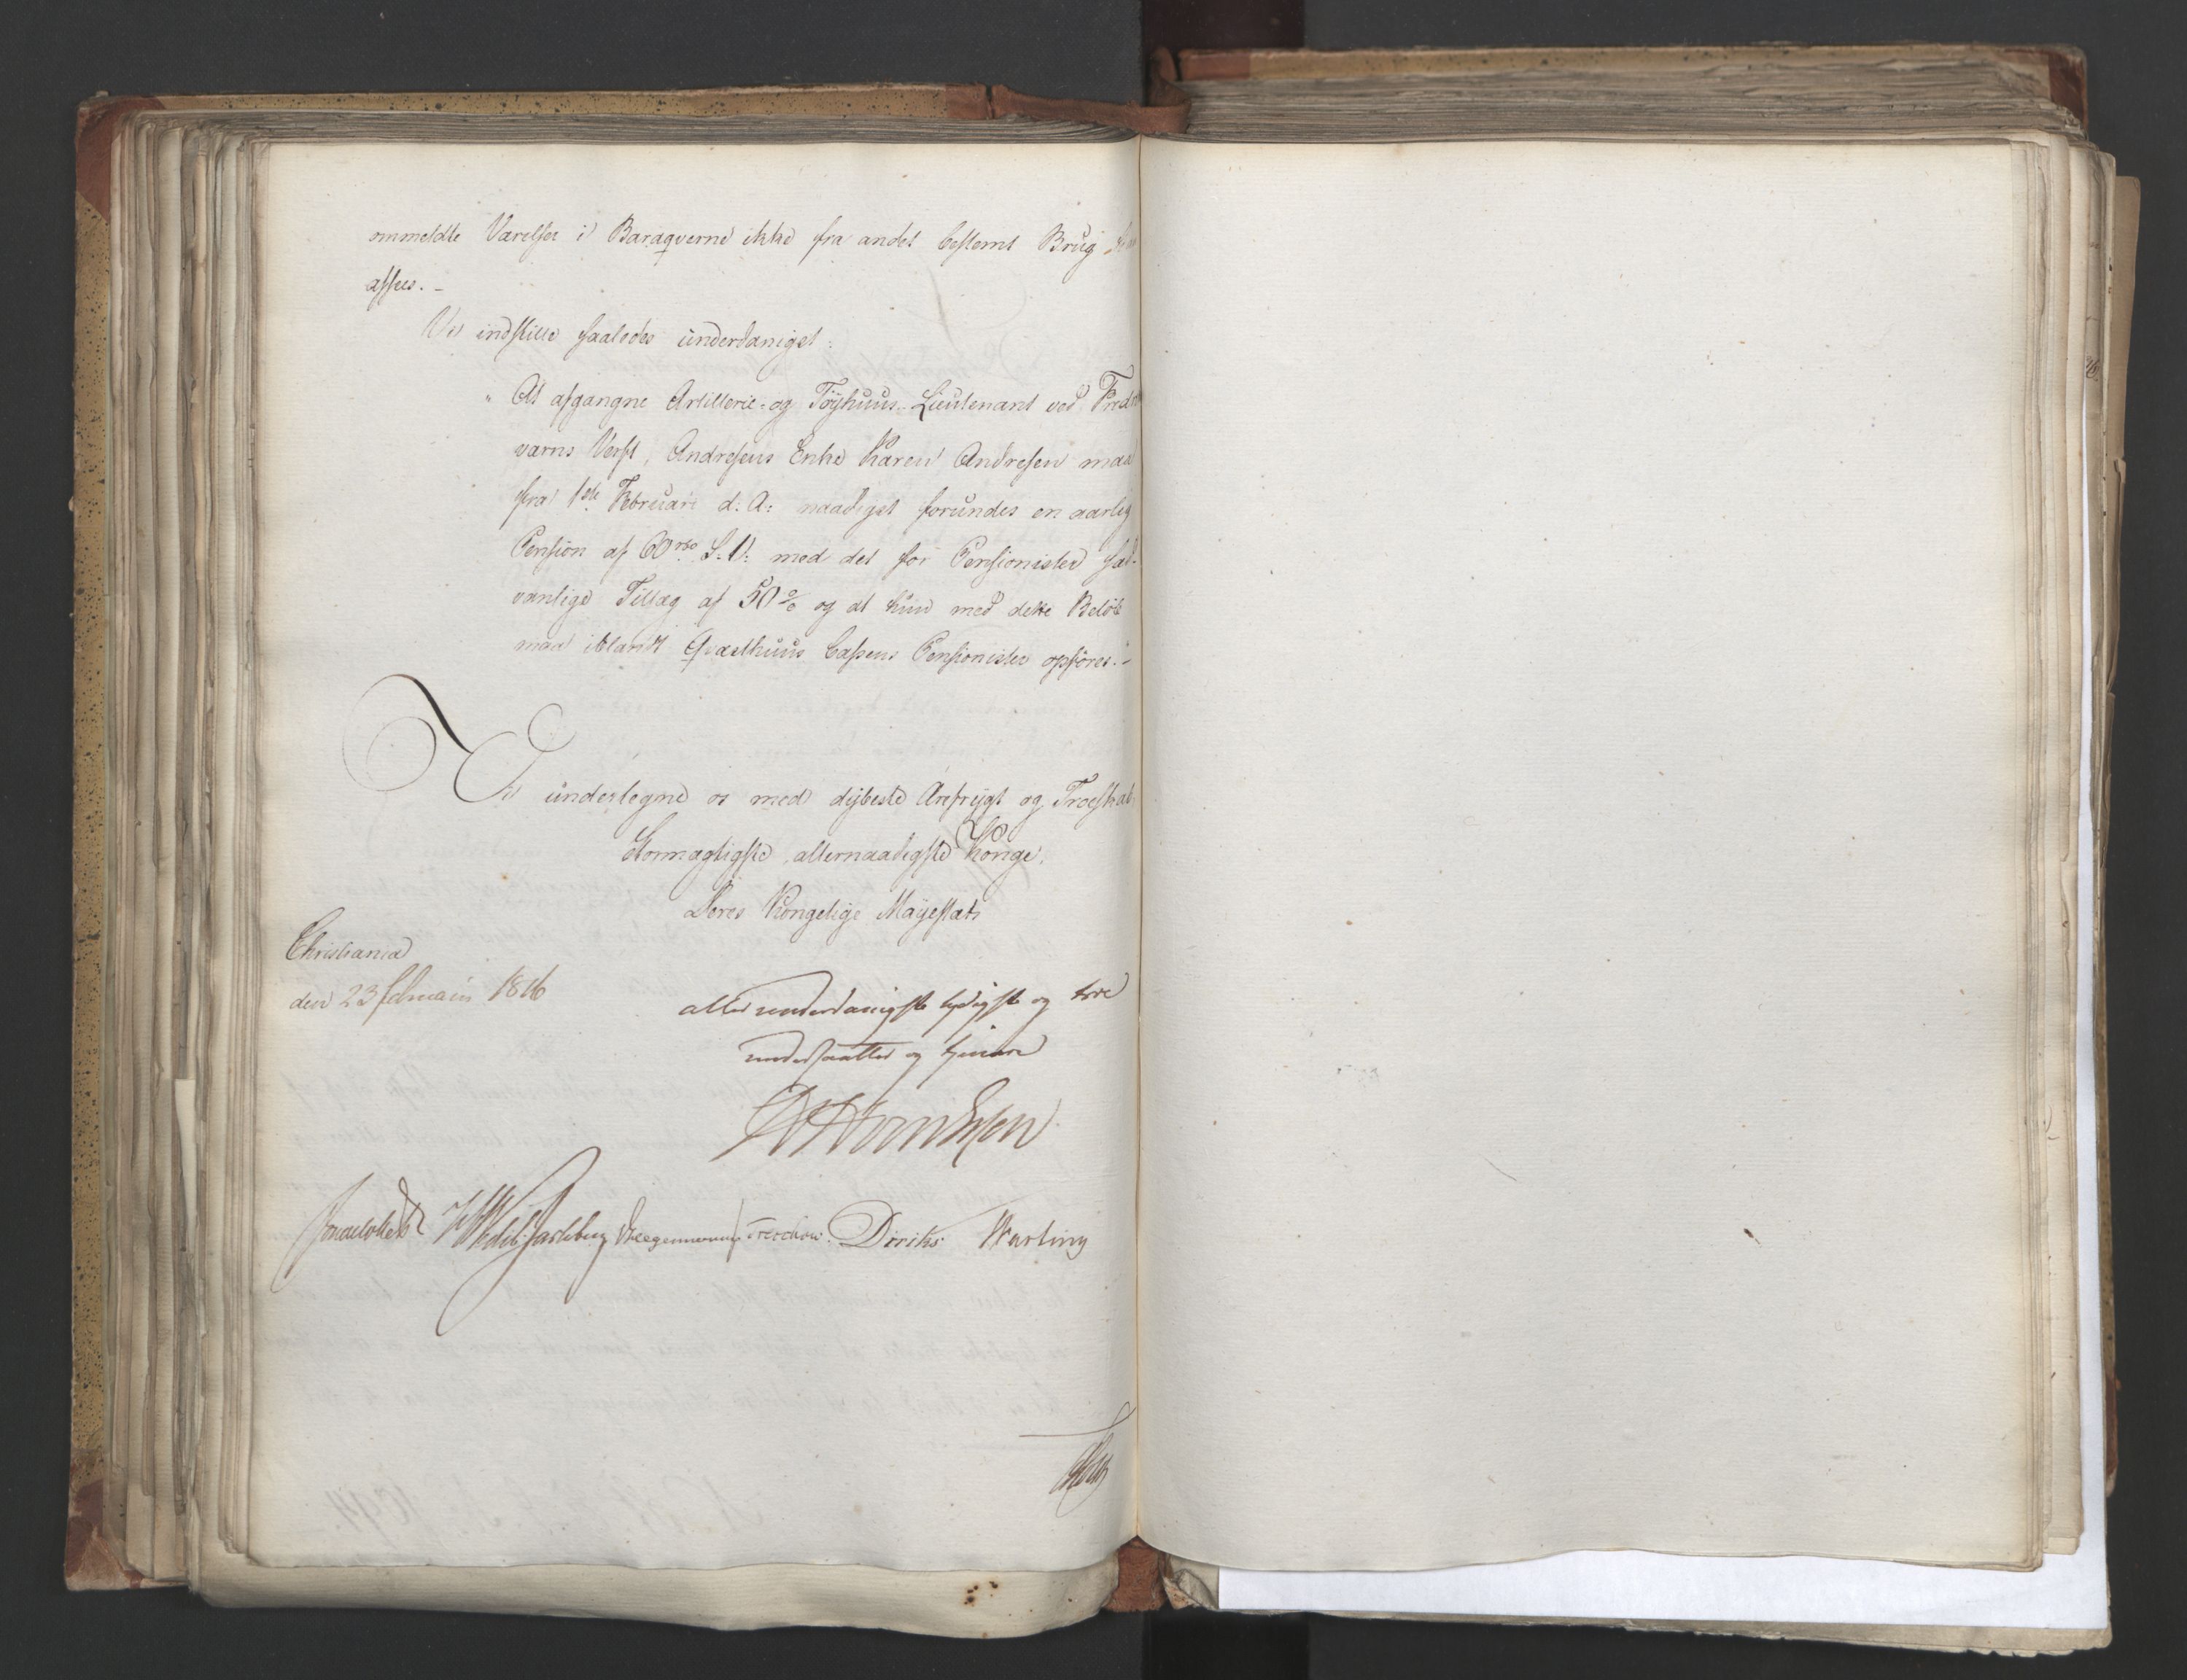 ommeldte Værelser i Baraqverne ikke fra andet bestemt Brug
afsees. -
Vi indstille saaledes underdanigst:
" At afgangne Artillerie- og Tøyhuus-Lieutenant ved Freds
værns Verft, Andresens Enke Karen Andresen maae
fra 1ste Februari d: A: naadigst forundes en aarlig
Pension af 60 rbd S:V: med det for Pensionister sæd-
vanlige Tillæg af 50 % og at hun med dette Beløb
maa iblandt Qvæsthuus Cassens Pensionister opføres. -
Vi undertegne os med dybeste Ærefrygt og Troeskab
Stormægtigste, allernaadigste Konge,
Deres Kongelige Mayestæts
Christiania
den 23 februarii 1816
allerunderdanigste lydigste og troe
undersaatter og tjenere
Jonas Collett HWedel Jarlsberg Treschow. Diriks